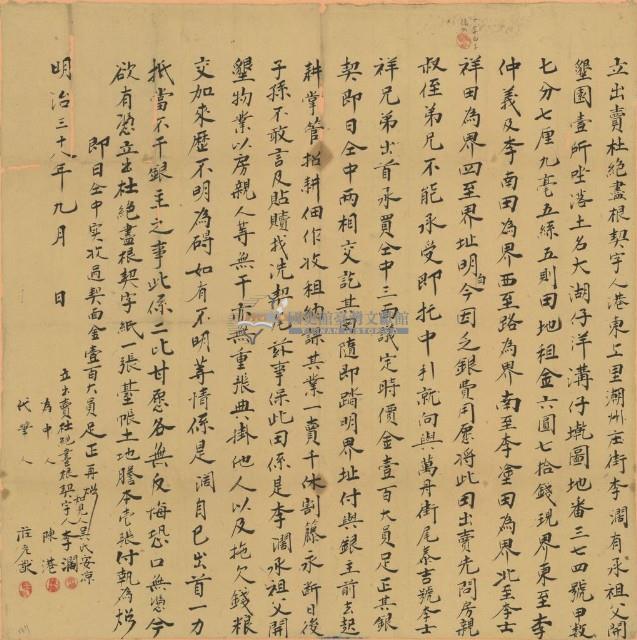 立出賣杜絕盡根契字人港東上里潮州庄街李濶有承祖父開
墾園壹所坐落土名大湖仔洋溝仔墘圖地番三七四號甲数
七分七厘九毫五絲五則田地租金六圓七拾錢現界東至李
仲義及李南田為界西至路為界南至李塗田為界北至李士
祥田為界四至界址明白今因乏銀費用愿將此田出賣先問房親
叔侄弟兄不能承受即托中引就向與萬丹街尾泰吉號李士
祥兄弟出首承買仝中三面議定時價金壹百大員足正其銀
契即日仝中兩相交訖其田隨即踏明界址付與銀主前去起
耕掌管招耕佃作收租納課其業一賣千休割藤永斷日後
子孫不敢言及貼贖找洗契尾茲事保此田係是李濶承祖父開
墾物業以房親人等無干亦無重張典掛他人以及拖欠錢粮
交加來歷不明為碍如有不明等情係是濶自己出首一力
抵當不干銀主之事此係二比甘愿各無反悔恐口無憑今
欲有憑立出杜絕盡根契字紙一張基限土地謄本壹張付執為炤
即日仝中实收過契面金壹百大員足正再炤
知見人吳氏
立出賣杜絕盡根契字人李濶
為中人 陳港
代筆人 莊
明治三十八年九月 日
國史館臺灣文獻館
TAIWAN HISTORICA